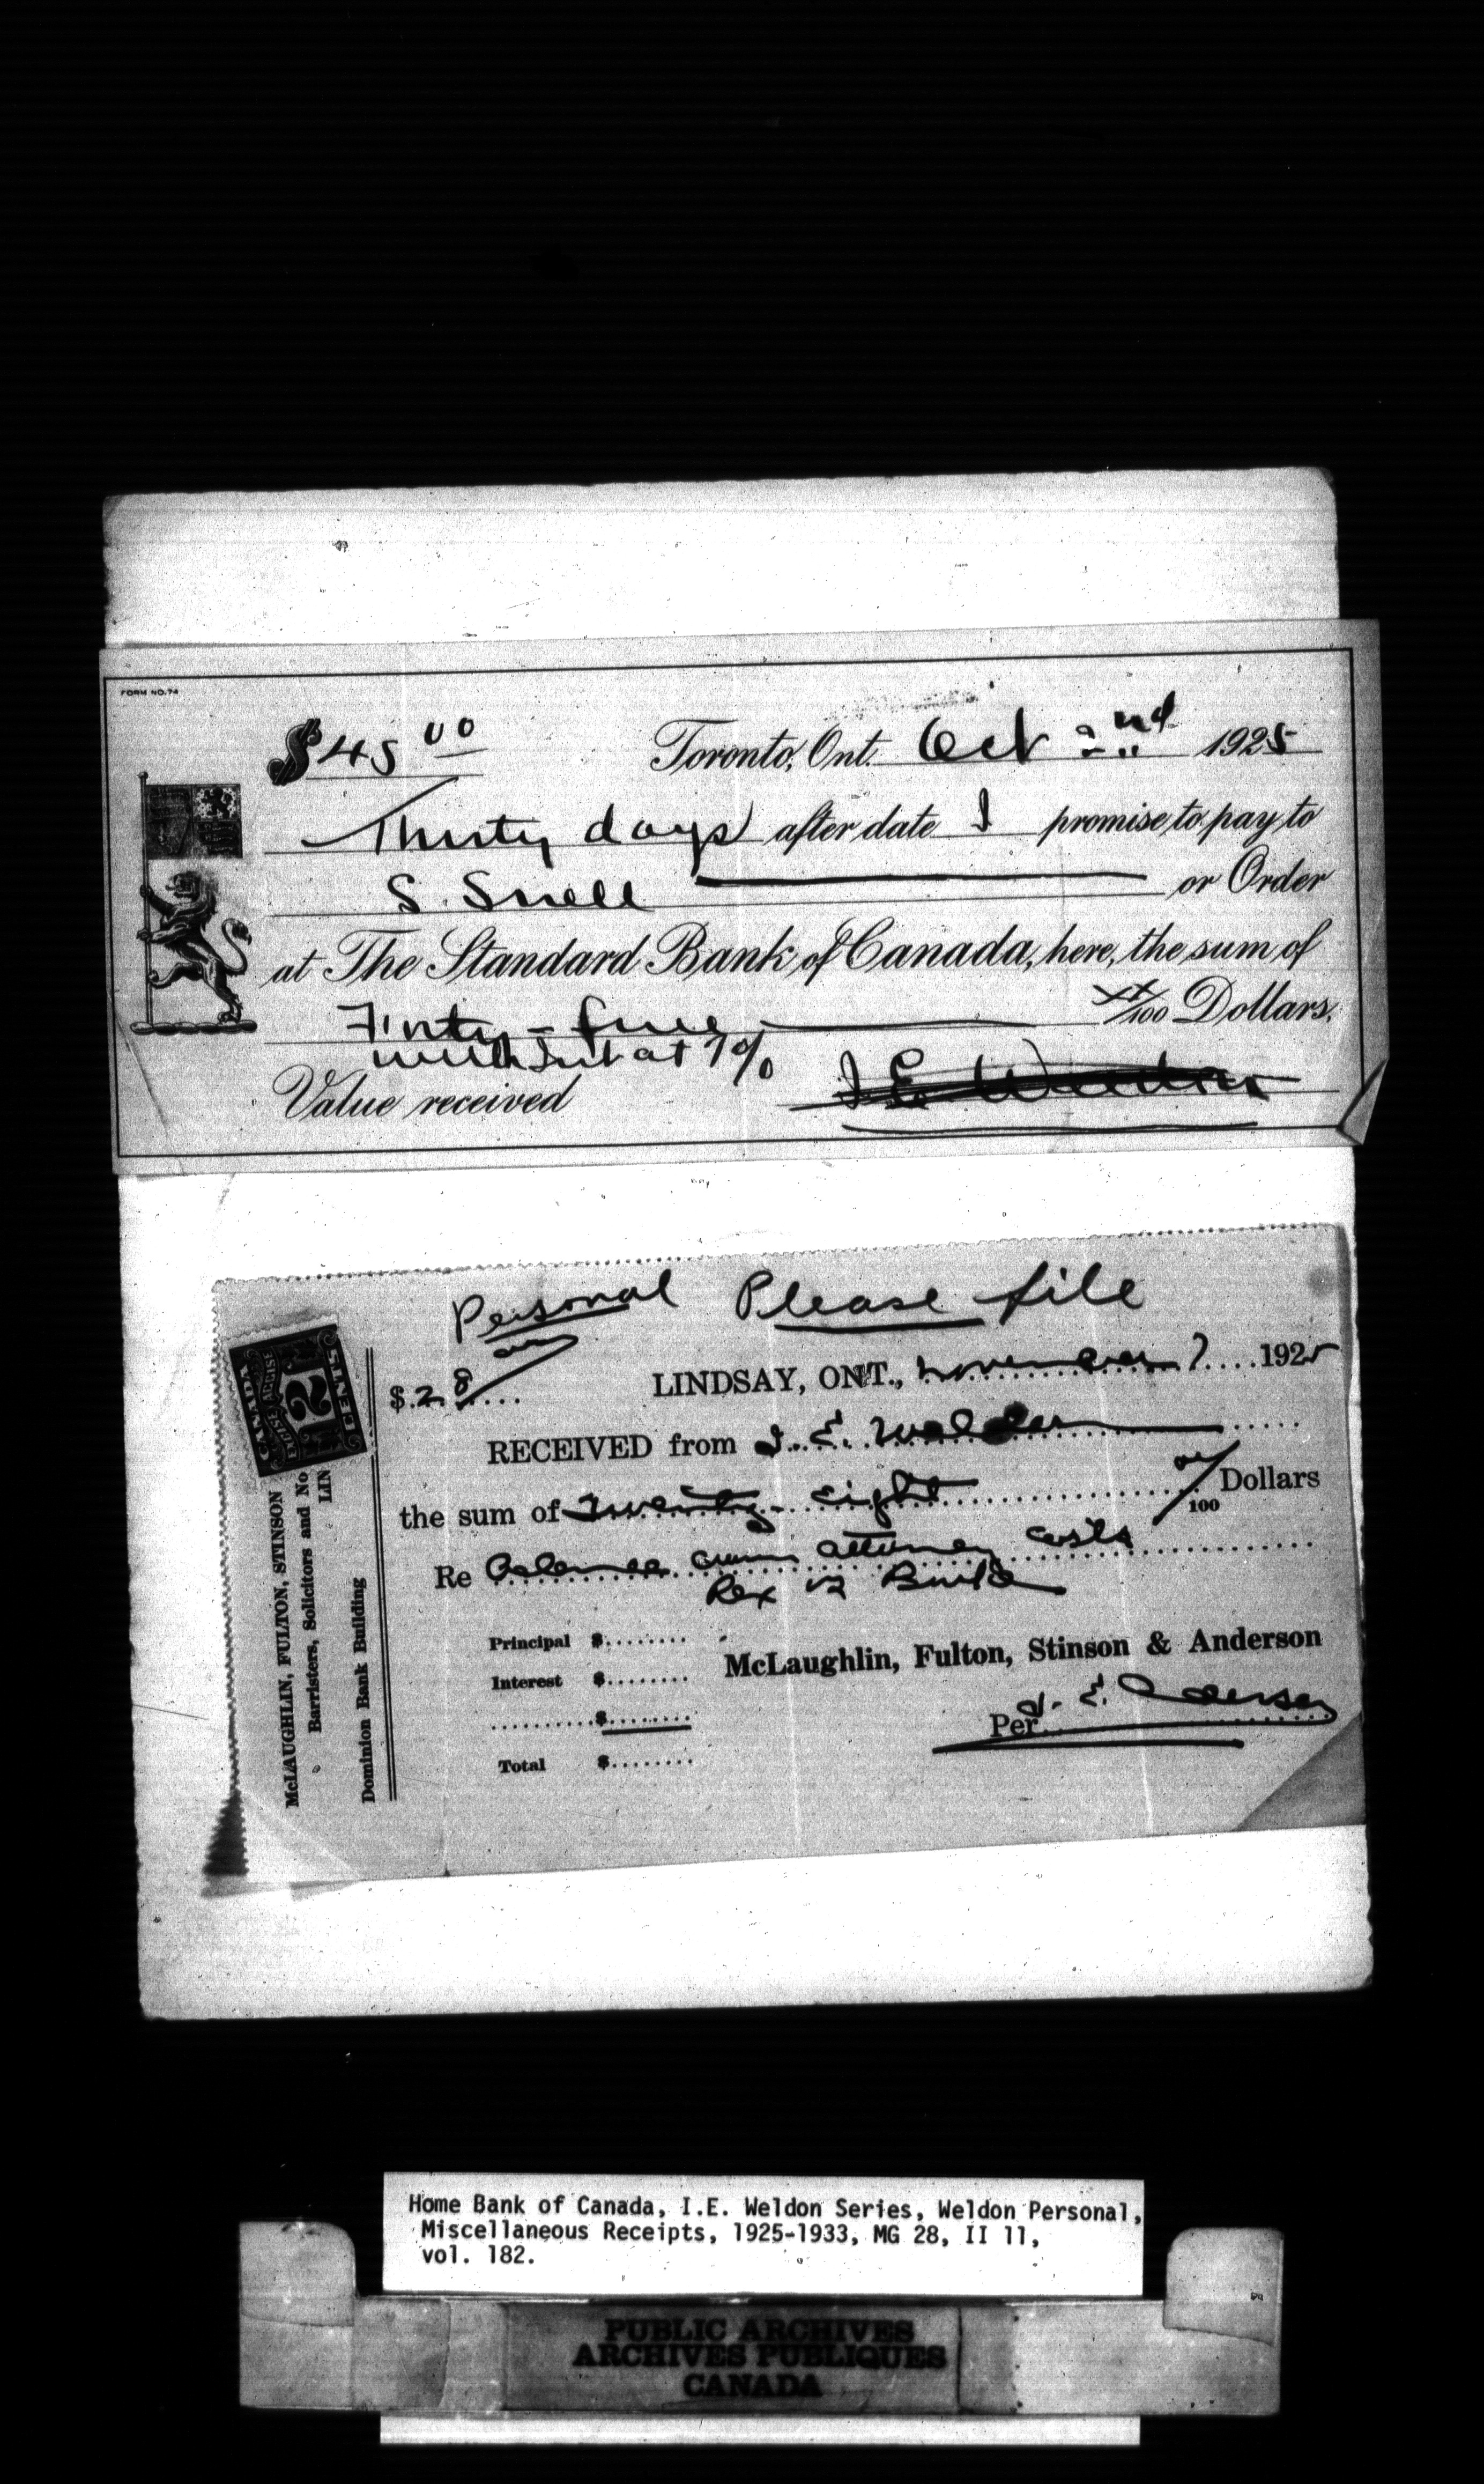 FORM NO. 74
$ 45 00 Toronto, Ont. Oct 2nd 1925
Thirty days after date I promise to pay to
S. Snell or Order
at The Standard Bank of Canada, here, the sum of
Forty-five xx/100 Dollars.
with Int at 7%
Value received I E Weldon
Personal Please file
$ 28 LINDSAY, ONT., November 7 1925
RECEIVED from I. E. Weldon
the sum of Twenty-eight 00/100 Dollars
Re Balance crown attorney costs
Rex vs
Principal $
Interest $
McLaughlin, Fulton, Stinson & Anderson
$
Per J. E. Anderson
Total $
CANADA
EXCISE ACCISE
2
CENTS
McLAUGHLIN, FULTON, STINSON
Barristers, Solicitors and No
LIN
Dominion Bank Building
Home Bank of Canada, I.E. Weldon Series, Weldon Personal,
Miscellaneous Receipts, 1925-1933, MG 28, II 11,
vol. 182.
PUBLIC ARCHIVES
ARCHIVES PUBLIQUES
CANADA